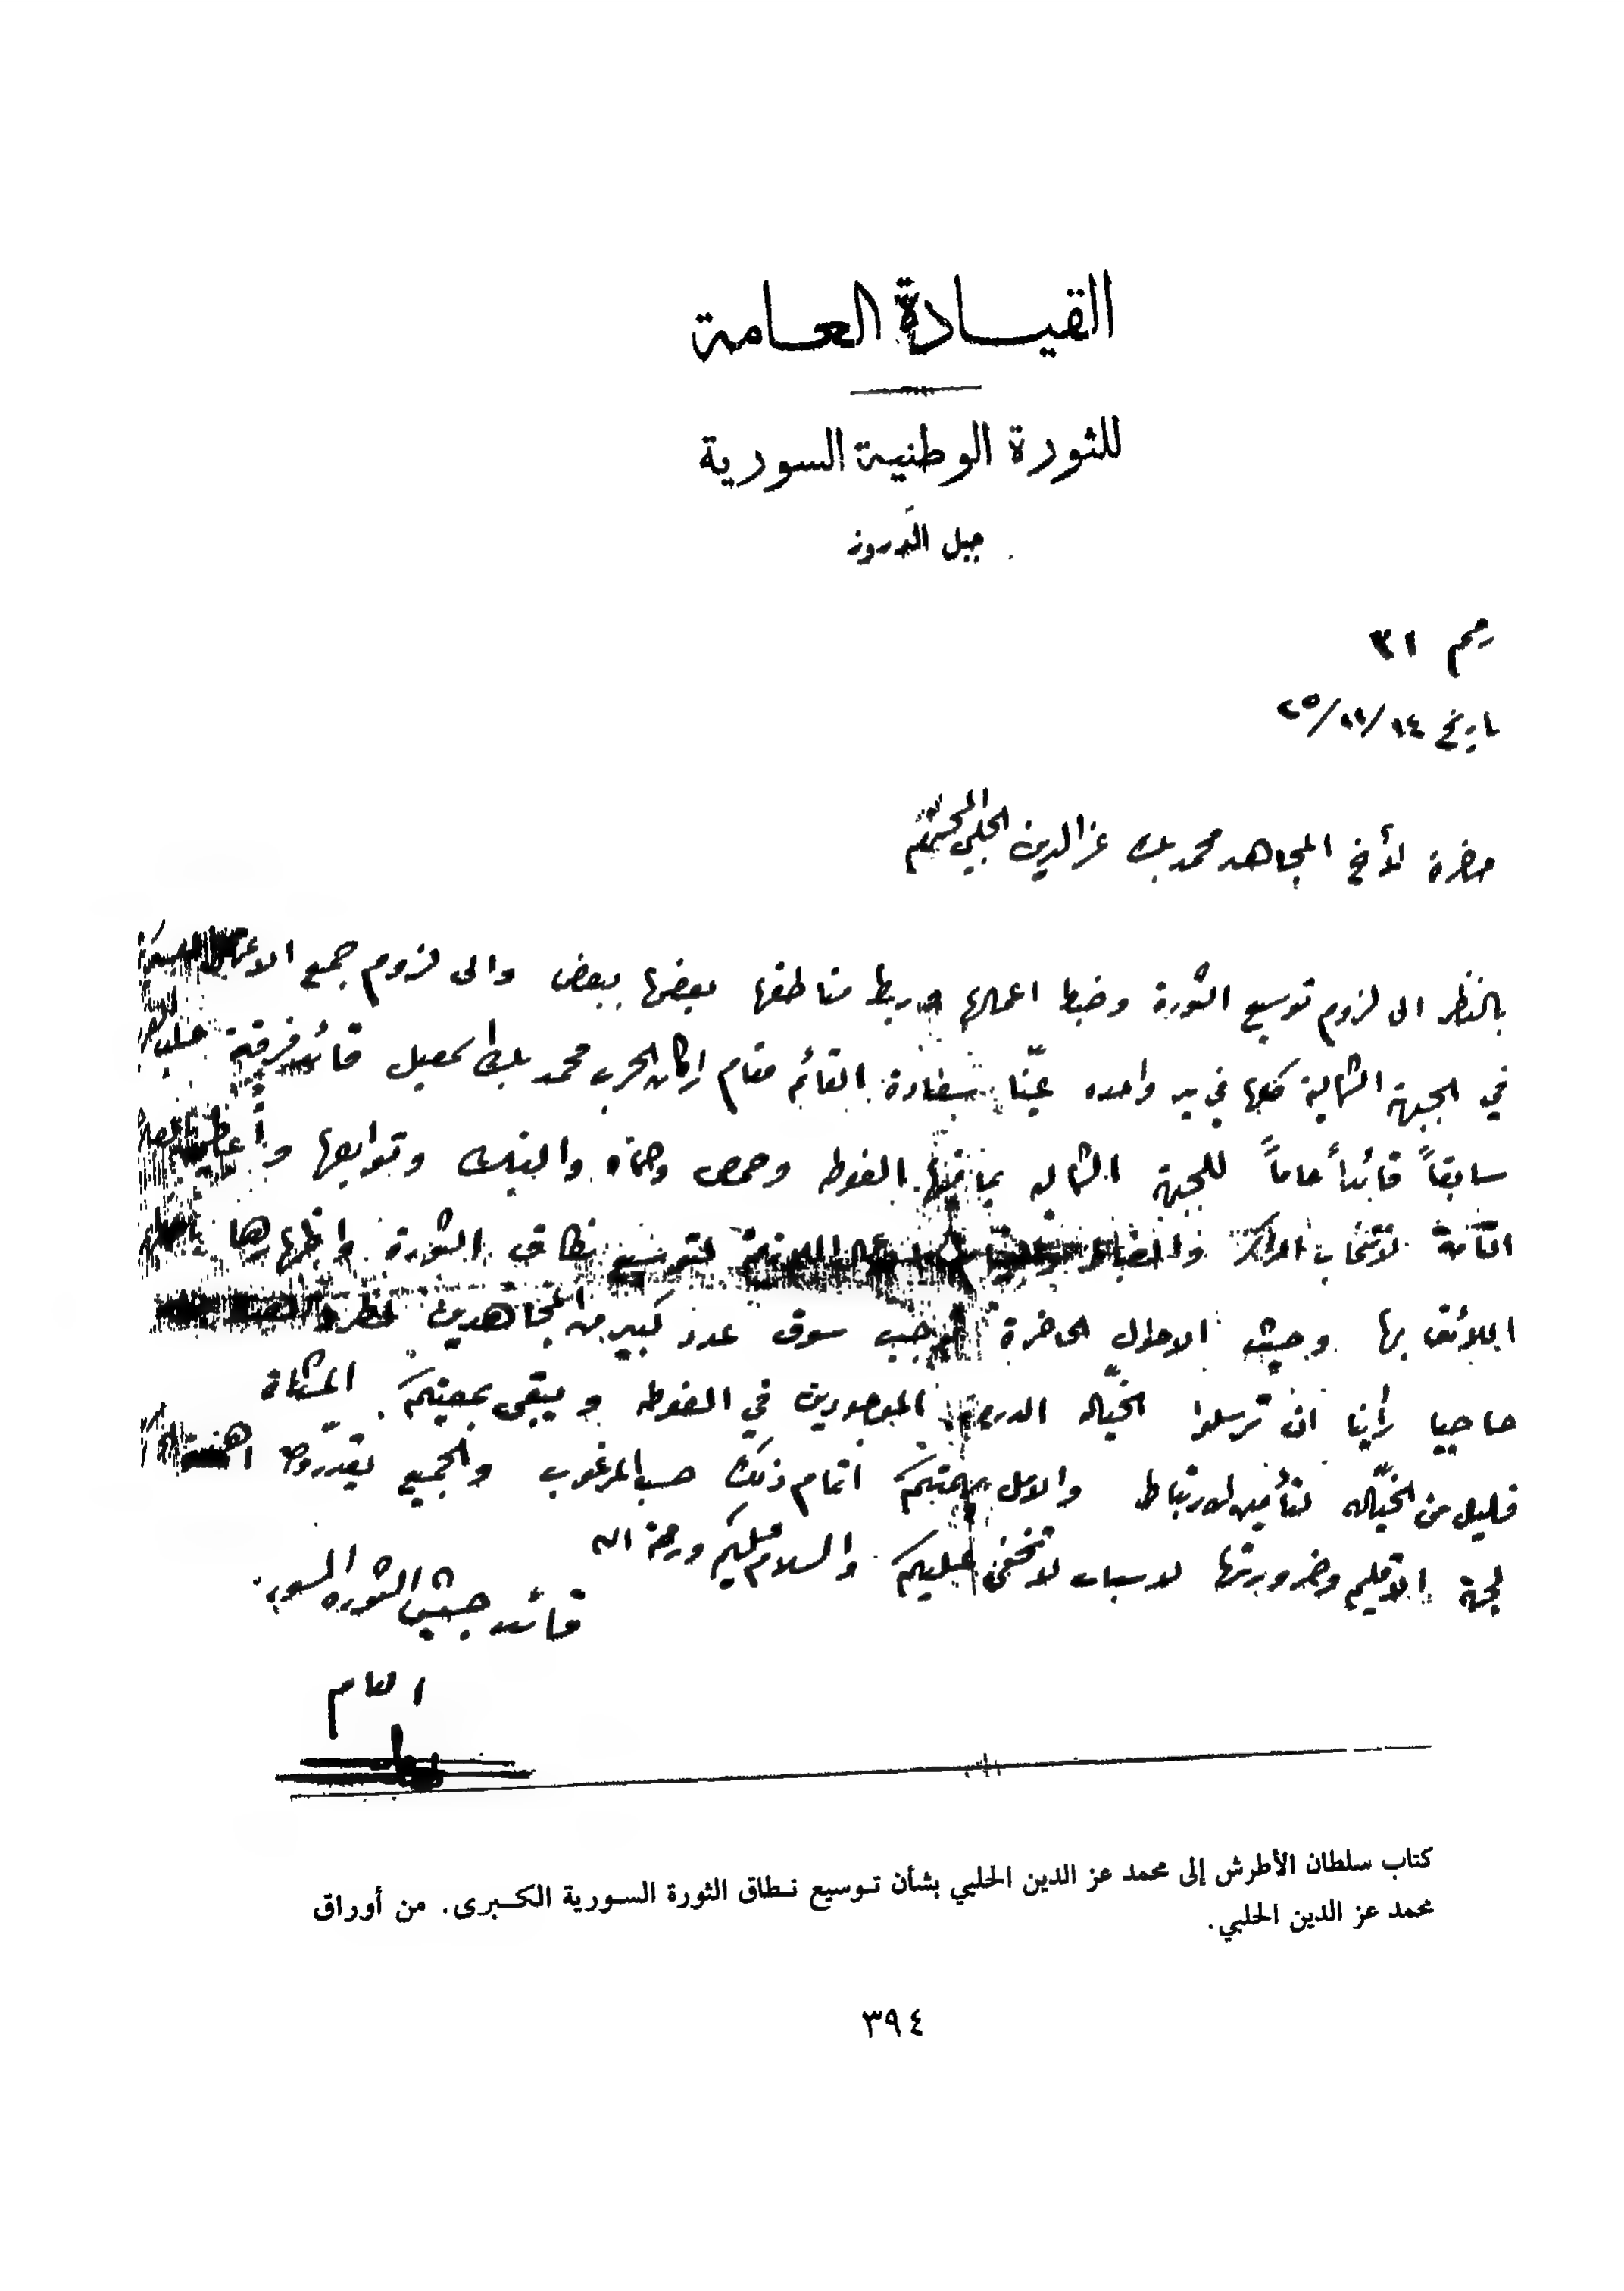 القيادة العامة
للثورة الوطنية السورية
جبل الدروز
رقم ٣١
تاريخ ١٤/١١/٢٥
حضرة الأخ المجاهد محمد بك عز الدين الحلبي المحترم
بالنظر الى لزوم توسيع الثورة وضبط اعمالها وربط مناطقها بعضها ببعض والى لزوم جمع
في الجبهة الشمالية كلها في يد واحده عيّنا سعادة القائم مقام اركان الحرب محمد بك اسمعيل قائد فرقة حلب
سابقاً قائداً عاماً للجبهة الشماليه بما فيها الغوطه وحمص وحماه والنبك وتوابعها
التامة لانتخاب المراكز والضباط اللازمة لتوسيع نطاق الثورة واظهارها
اللائق بها وحيث الاحوال الحاضرة توجب سوق عدد كبير من المجاهدين
حاصبيا رأينا ان ترسلوا الخيّاله الدروز الموجودين في الغوطه ويبقى بمعيتكم المشاة
قليل من الخيّاله لتأمين الارتباط والامل بهمتكم اتمام ذلك حسب المرغوب والجميع يقدّرون
لجهة الاقليم وضرورتها لاسباب لا تخفى عليكم والسلام عليكم ورحمة الله
قائد جيش الثوره السوريه
العام
كتاب سلطان الأطرش إلى محمد عز الدين الحلبي بشأن توسيع نطاق الثورة السورية الكبرى. من أوراق
محمد عز الدين الحلبي.
٣٩٤